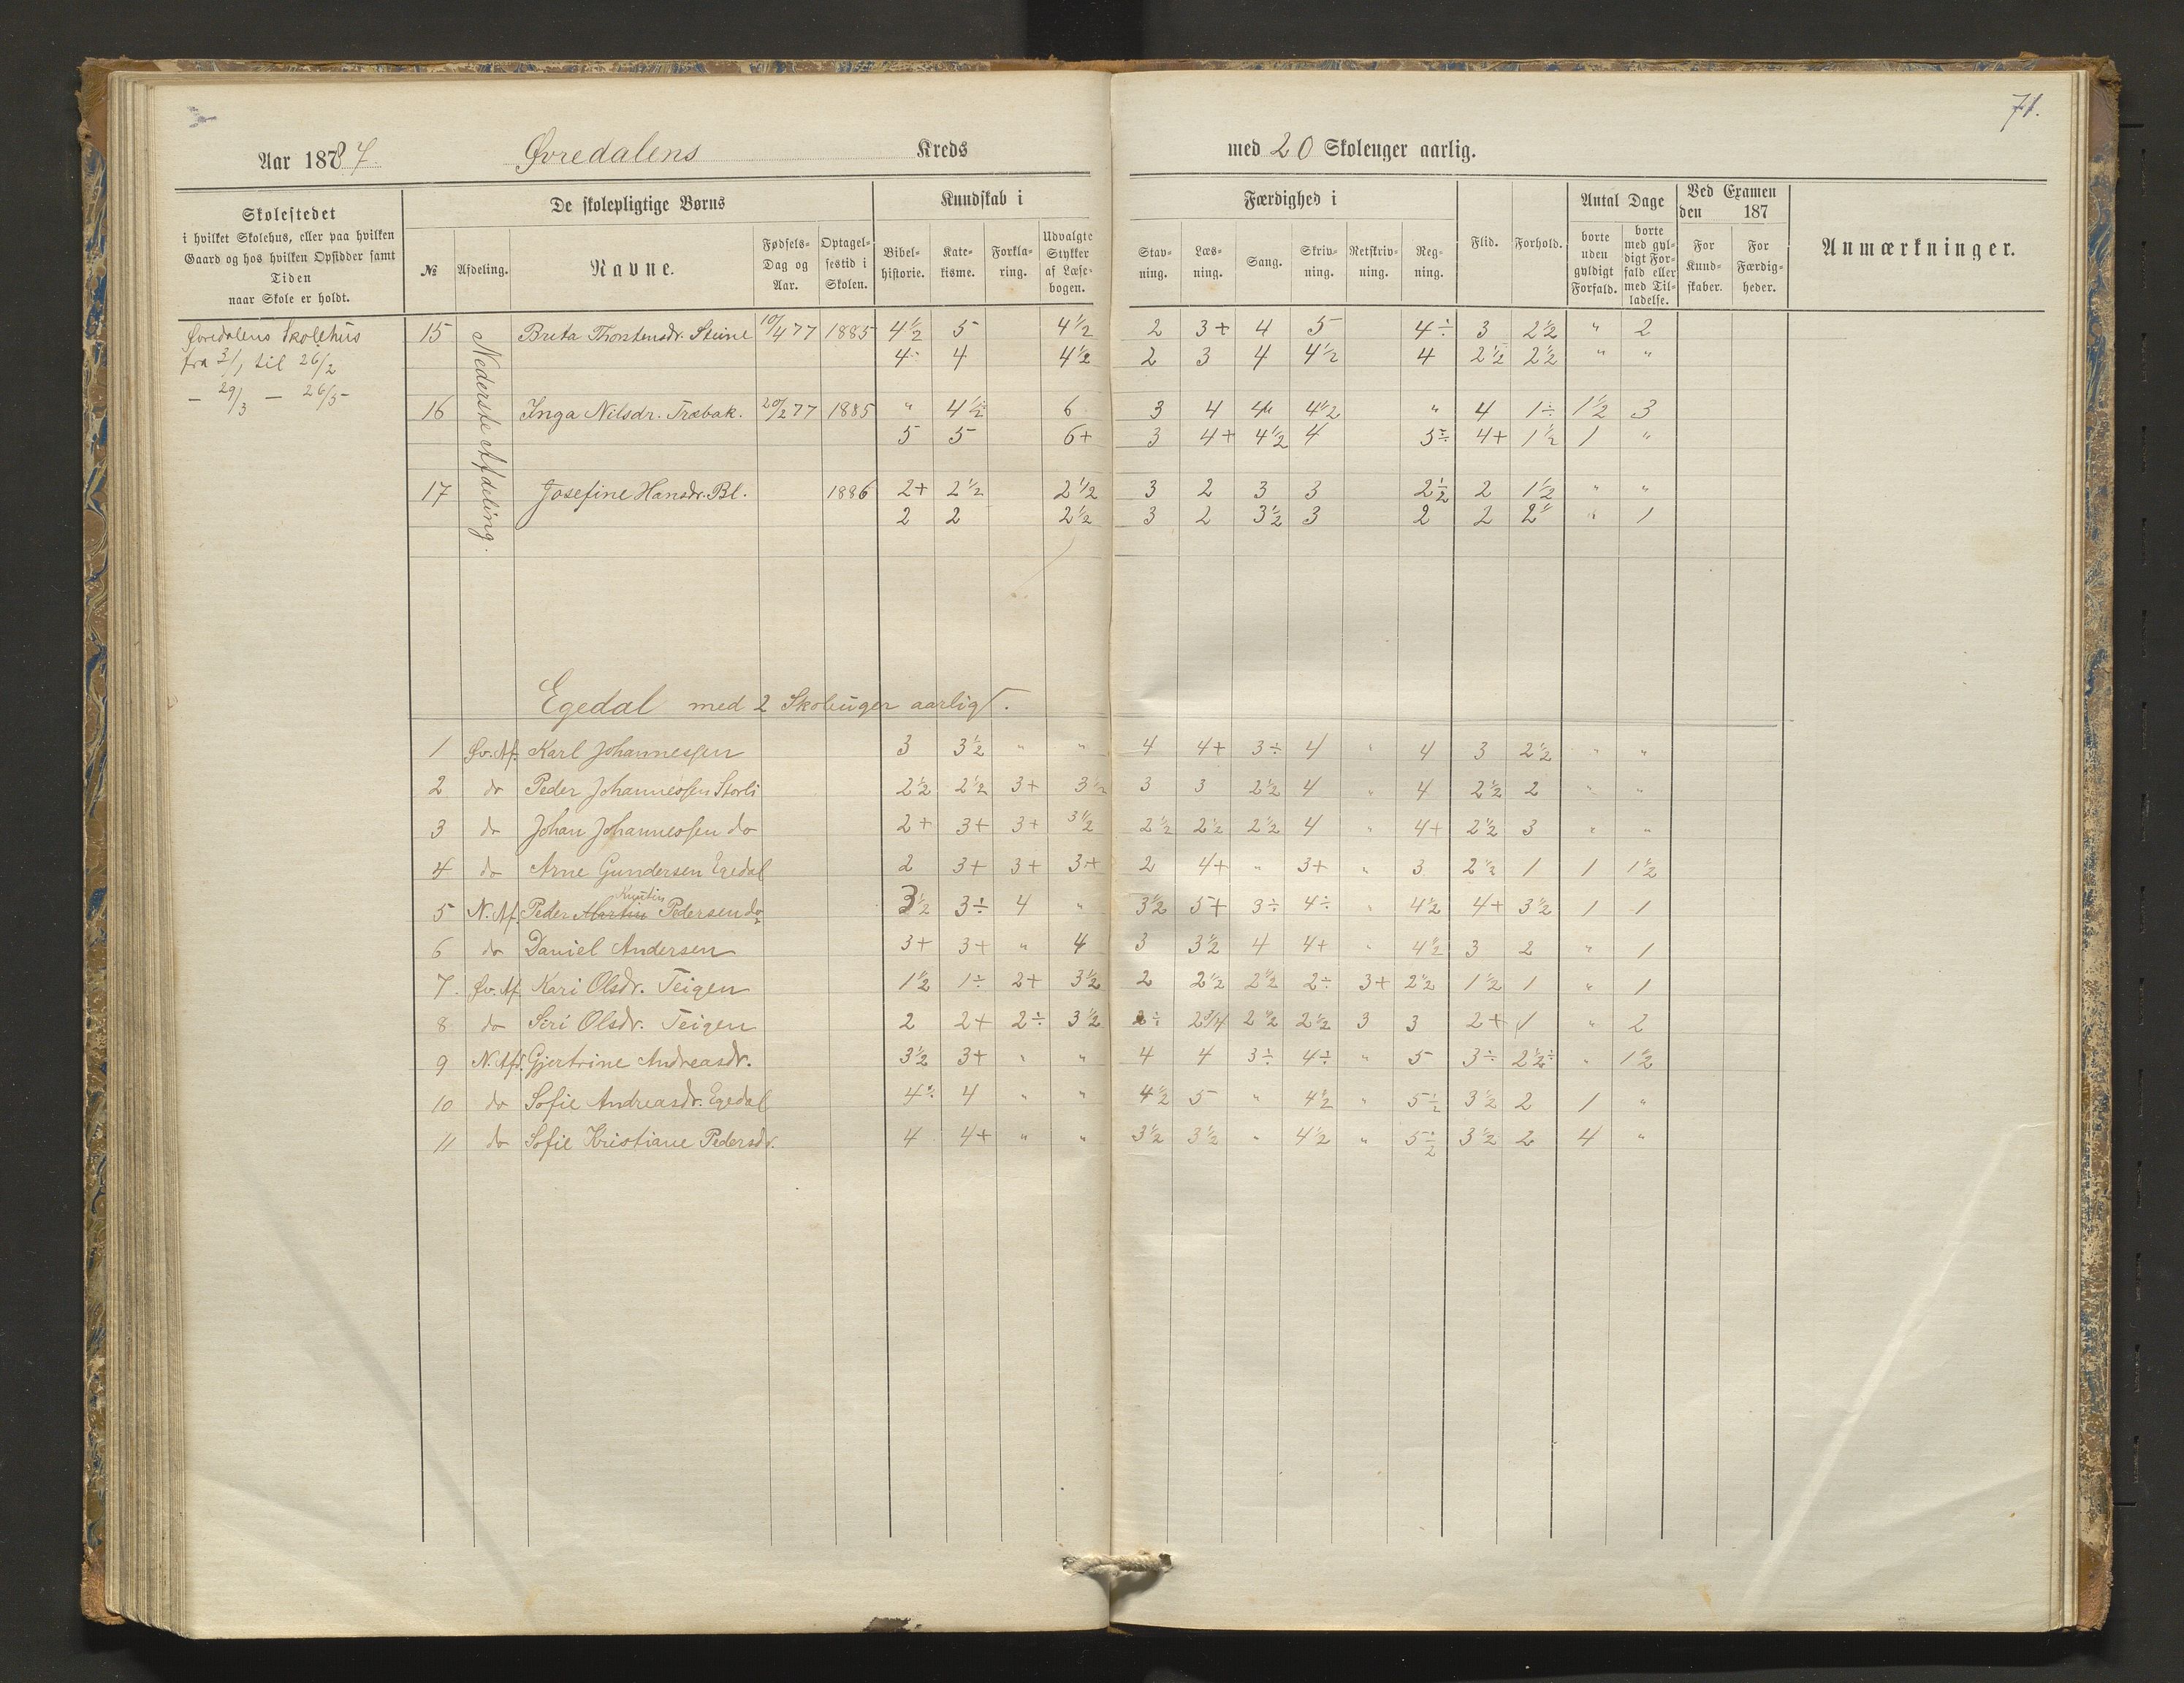 71.
Aar 1887. Øvredalens Kreds med 20 Skoleuger aarlig.
Skolestedet i hvilket Skolehus, eller paa hvilken Gaard og hos hvilken Opsidder samt Tiden naar Skole er holdt.
De skolepligtige Børns
№ Afdeling. Navne. Fødsels-Dag og Aar. Optagelsestid i Skolen.
Kundskab i
Bibelhistorie. Katekisme. Forklaring. Udvalgte Stykker af Læsebogen.
Færdighed i
Stavning. Læsning. Sang. Skrivning. Retskrivning. Regning.
Flid. Forhold.
Antal Dage
borte uden gyldigt Forfald. borte med gyldigt Forfald eller med Tilladelse.
Ved Examen den 187
For Kundskaber. For Færdigheder.
Anmærkninger.
Øvredalens Skolehus
fra 3/1 til 26/2
— 29/3 — 26/5
Nederste Afdeling.
15 Brita Thorstensdr. Steine 10/4 77 1885 4½ 5 4½ 2 3+ 4 5 4÷ 3 2½ " 2
4÷ 4 4½ 2 3 4 4½ 4 2½ 2½ " "
16 Inga Nilsdr. Træbak. 20/2 77 1885 " 4½ 6 3 4 4 4½ " 4 1÷ 1½ 3
5 5 6+ 3 4+ 4½ 4 5÷ 4+ 1½ 1 "
17 Josefine Hansdr. Bl. 1886 2+ 2½ 2½ 3 2 3 3 2½ 2 1½ " "
2 2 2½ 3 2 3½ 3 2 2 2 " 1
Egedal med 2 Skoleuger aarligt.
1 Øv. Af. Karl Johannessen 3 3½ " " 4 4+ 3÷ 4 " 4 3 2½ " "
2 do Peder Johannessen Storli 2½ 2½ 3+ 3½ 3 3 2½ 4 " 4 2½ 2 " "
3 do Johan Johannessen do 2+ 3+ 3+ 3½ 2½ 2½ 2½ 4 " 4+ 2½ 3 " "
4 do Arne Gundersen Egedal 2 3+ 3+ 3+ 2 4+ " 3+ " 3 2½ 1 1 1½
5 N. Af. Peder Martin Pedersen do 3½ 3÷ 4 " 3½ 5+ 3÷ 4÷ " 4½ 4+ 3½ 1 1
6 do Daniel Andersen 3+ 3+ " 4 3 3½ 4 4+ " 4½ 3 2 " 1
7. Øv. Af. Kari Olsdr. Teigen 1½ 1÷ 2+ 3½ 2 2½ 2½ 2÷ 3+ 2½ 1½ 1 " 1
8 do Siri Olsdr. Teigen 2 2+ 2÷ 3½ 2÷ 2¾ 2½ 2½ 3 3 2+ 1 " 2
9 N. Afd. Gjertrine Andreasdr. 3½ 3+ " " 4 4 3÷ 4÷ " 5 3÷ 2½÷ " 1½
10 do Sofie Andreasdr. Egedal 4÷ 4 " " 4½ 5 " 4½ " 5½ 3½ 2 1 "
11 do Sofie Kristiane Pedersdr. 4 4+ " " 3½ 3½ " 4½ " 5½ 3½ 2 4 "